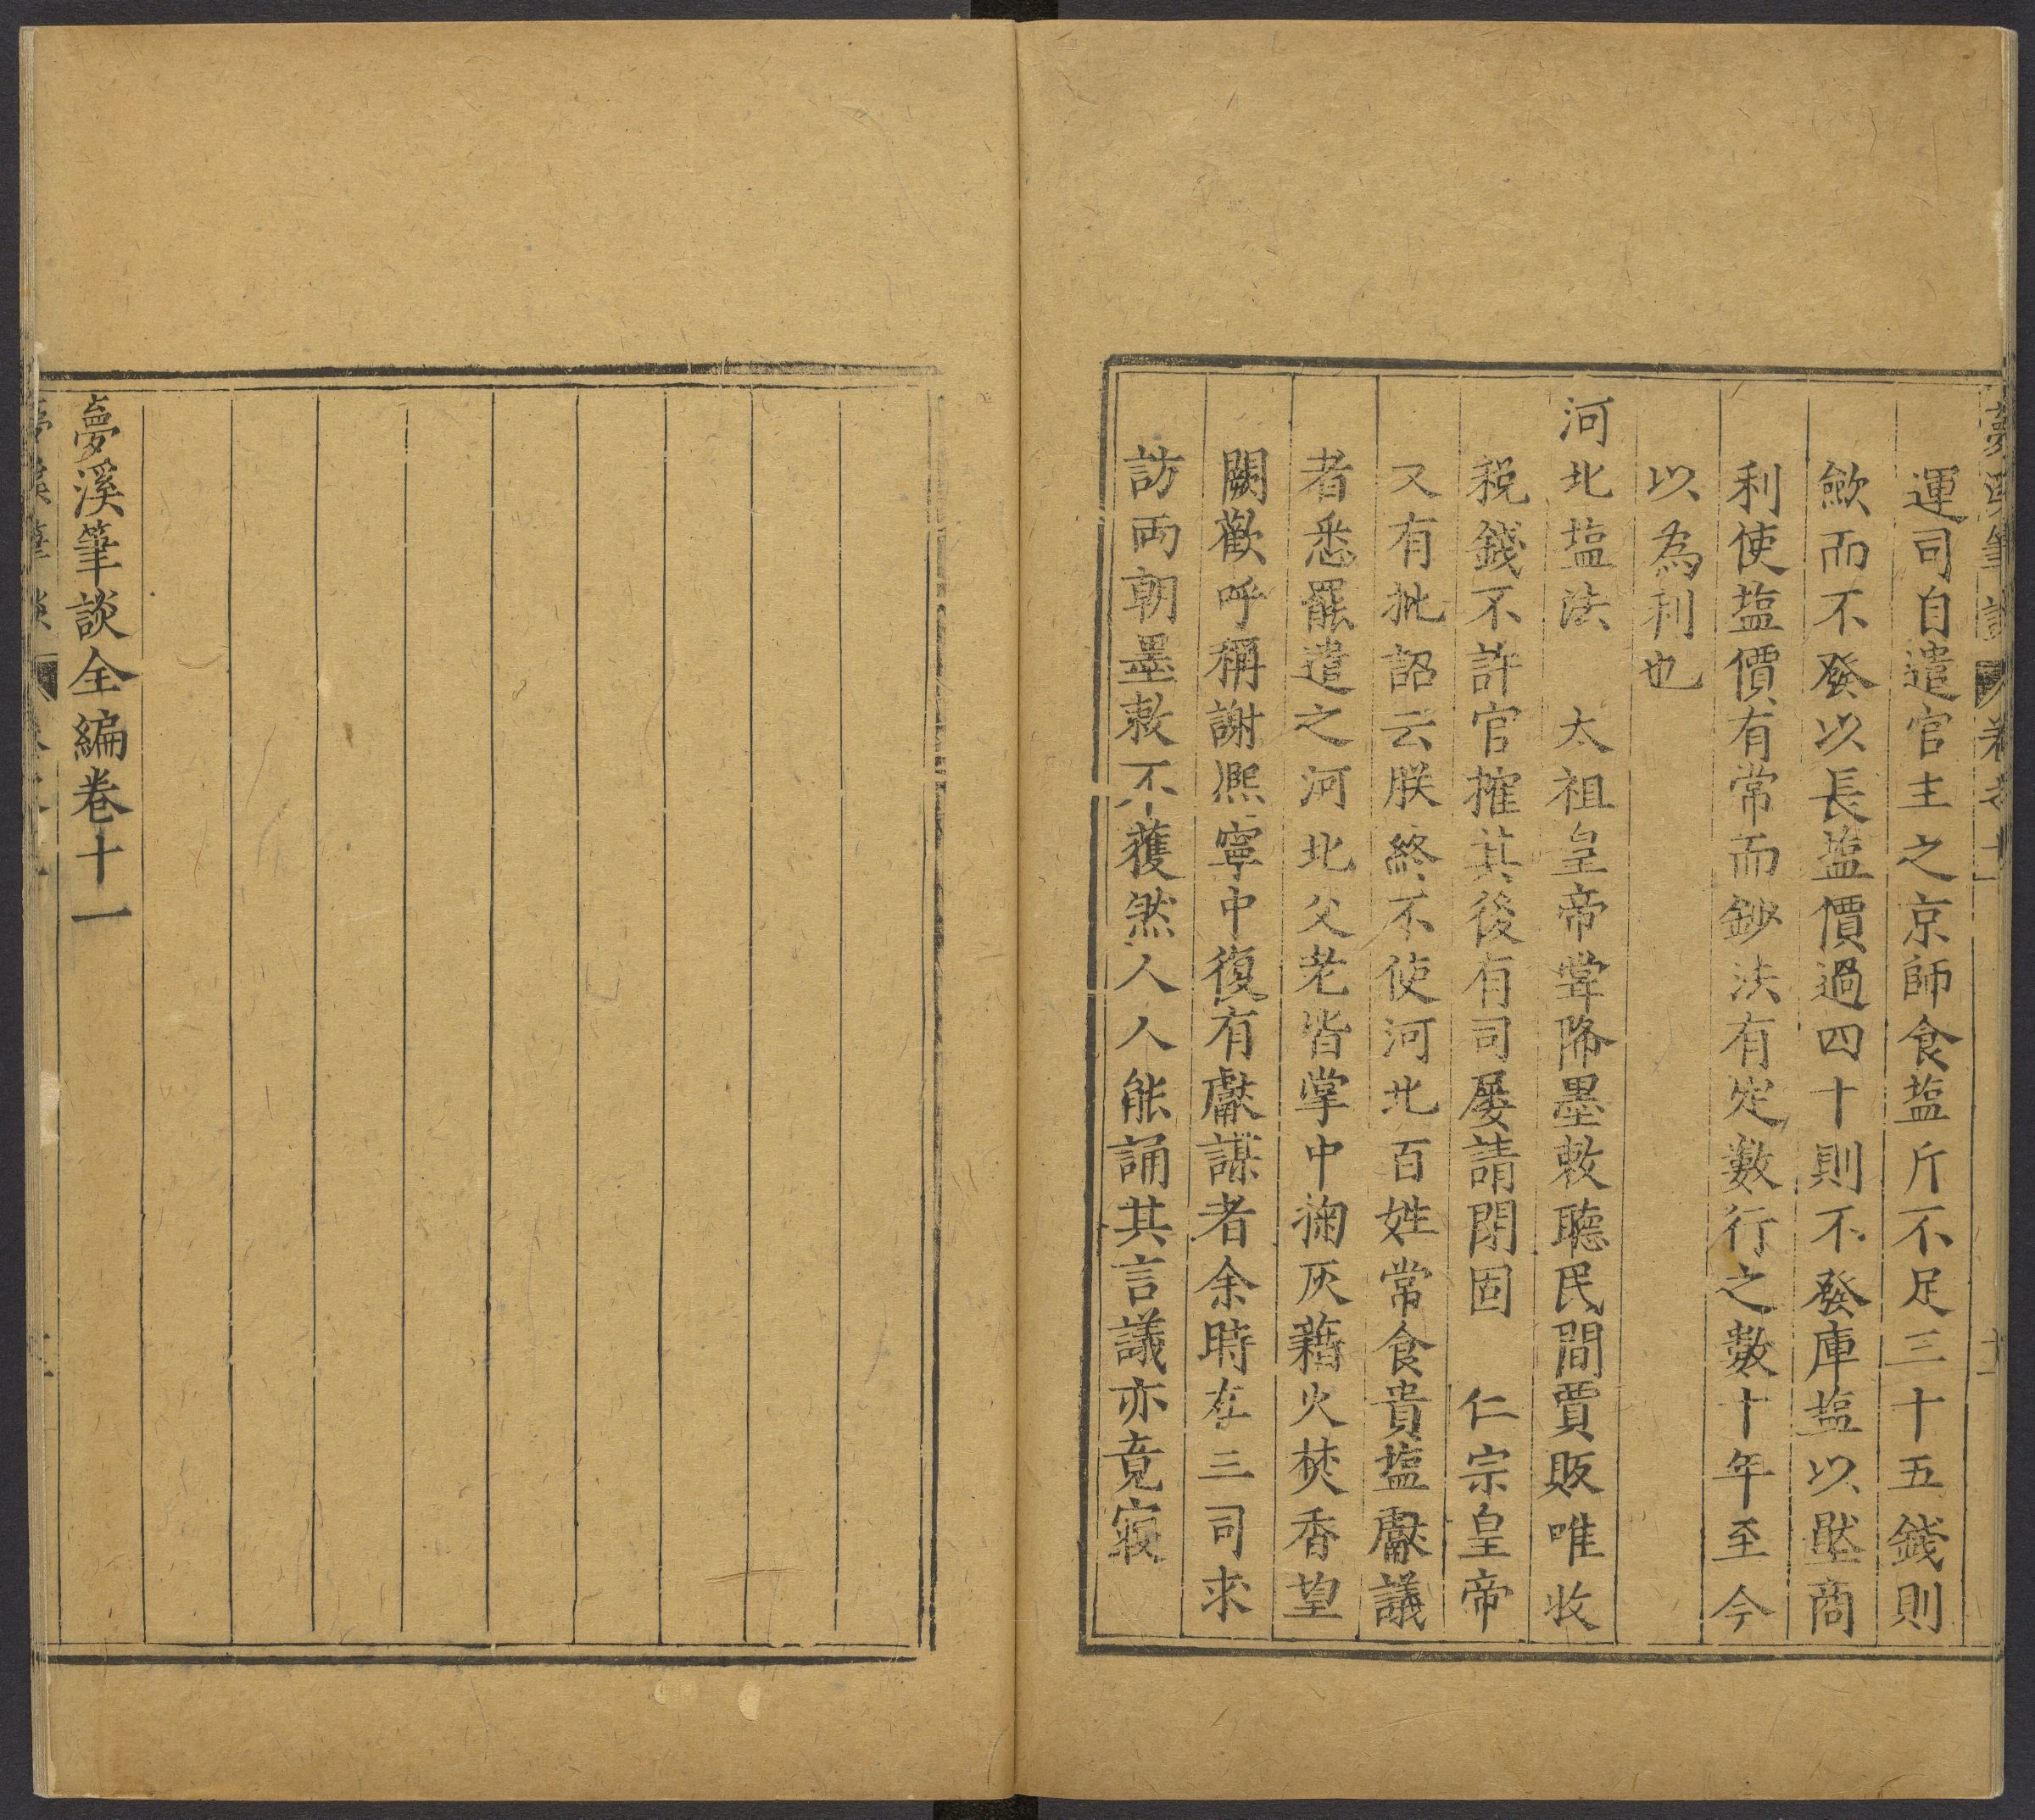 運司自遣官主之京師食塩斤不足三十五錢則
歛而不發以長塩價過四十則不發庫塩以壓商
利使塩價有常而鈔法有定數行之數十年至今
以為利也
河北塩法　太祖皇帝甞降墨敕聽民間賈販唯收
稅錢不許官搉其後有司屡請閉固　仁宗皇帝
又有批詔云朕終不使河北百姓常食貴塩獻議
者悉罷遣之河北父老皆掌中掬灰藉火焚香望
闕歡呼稱謝熈寧中復有獻謀者余時在三司求
訪両朝墨敕不獲然人人能誦其言議亦竟寢
夢溪筆談全編卷十一